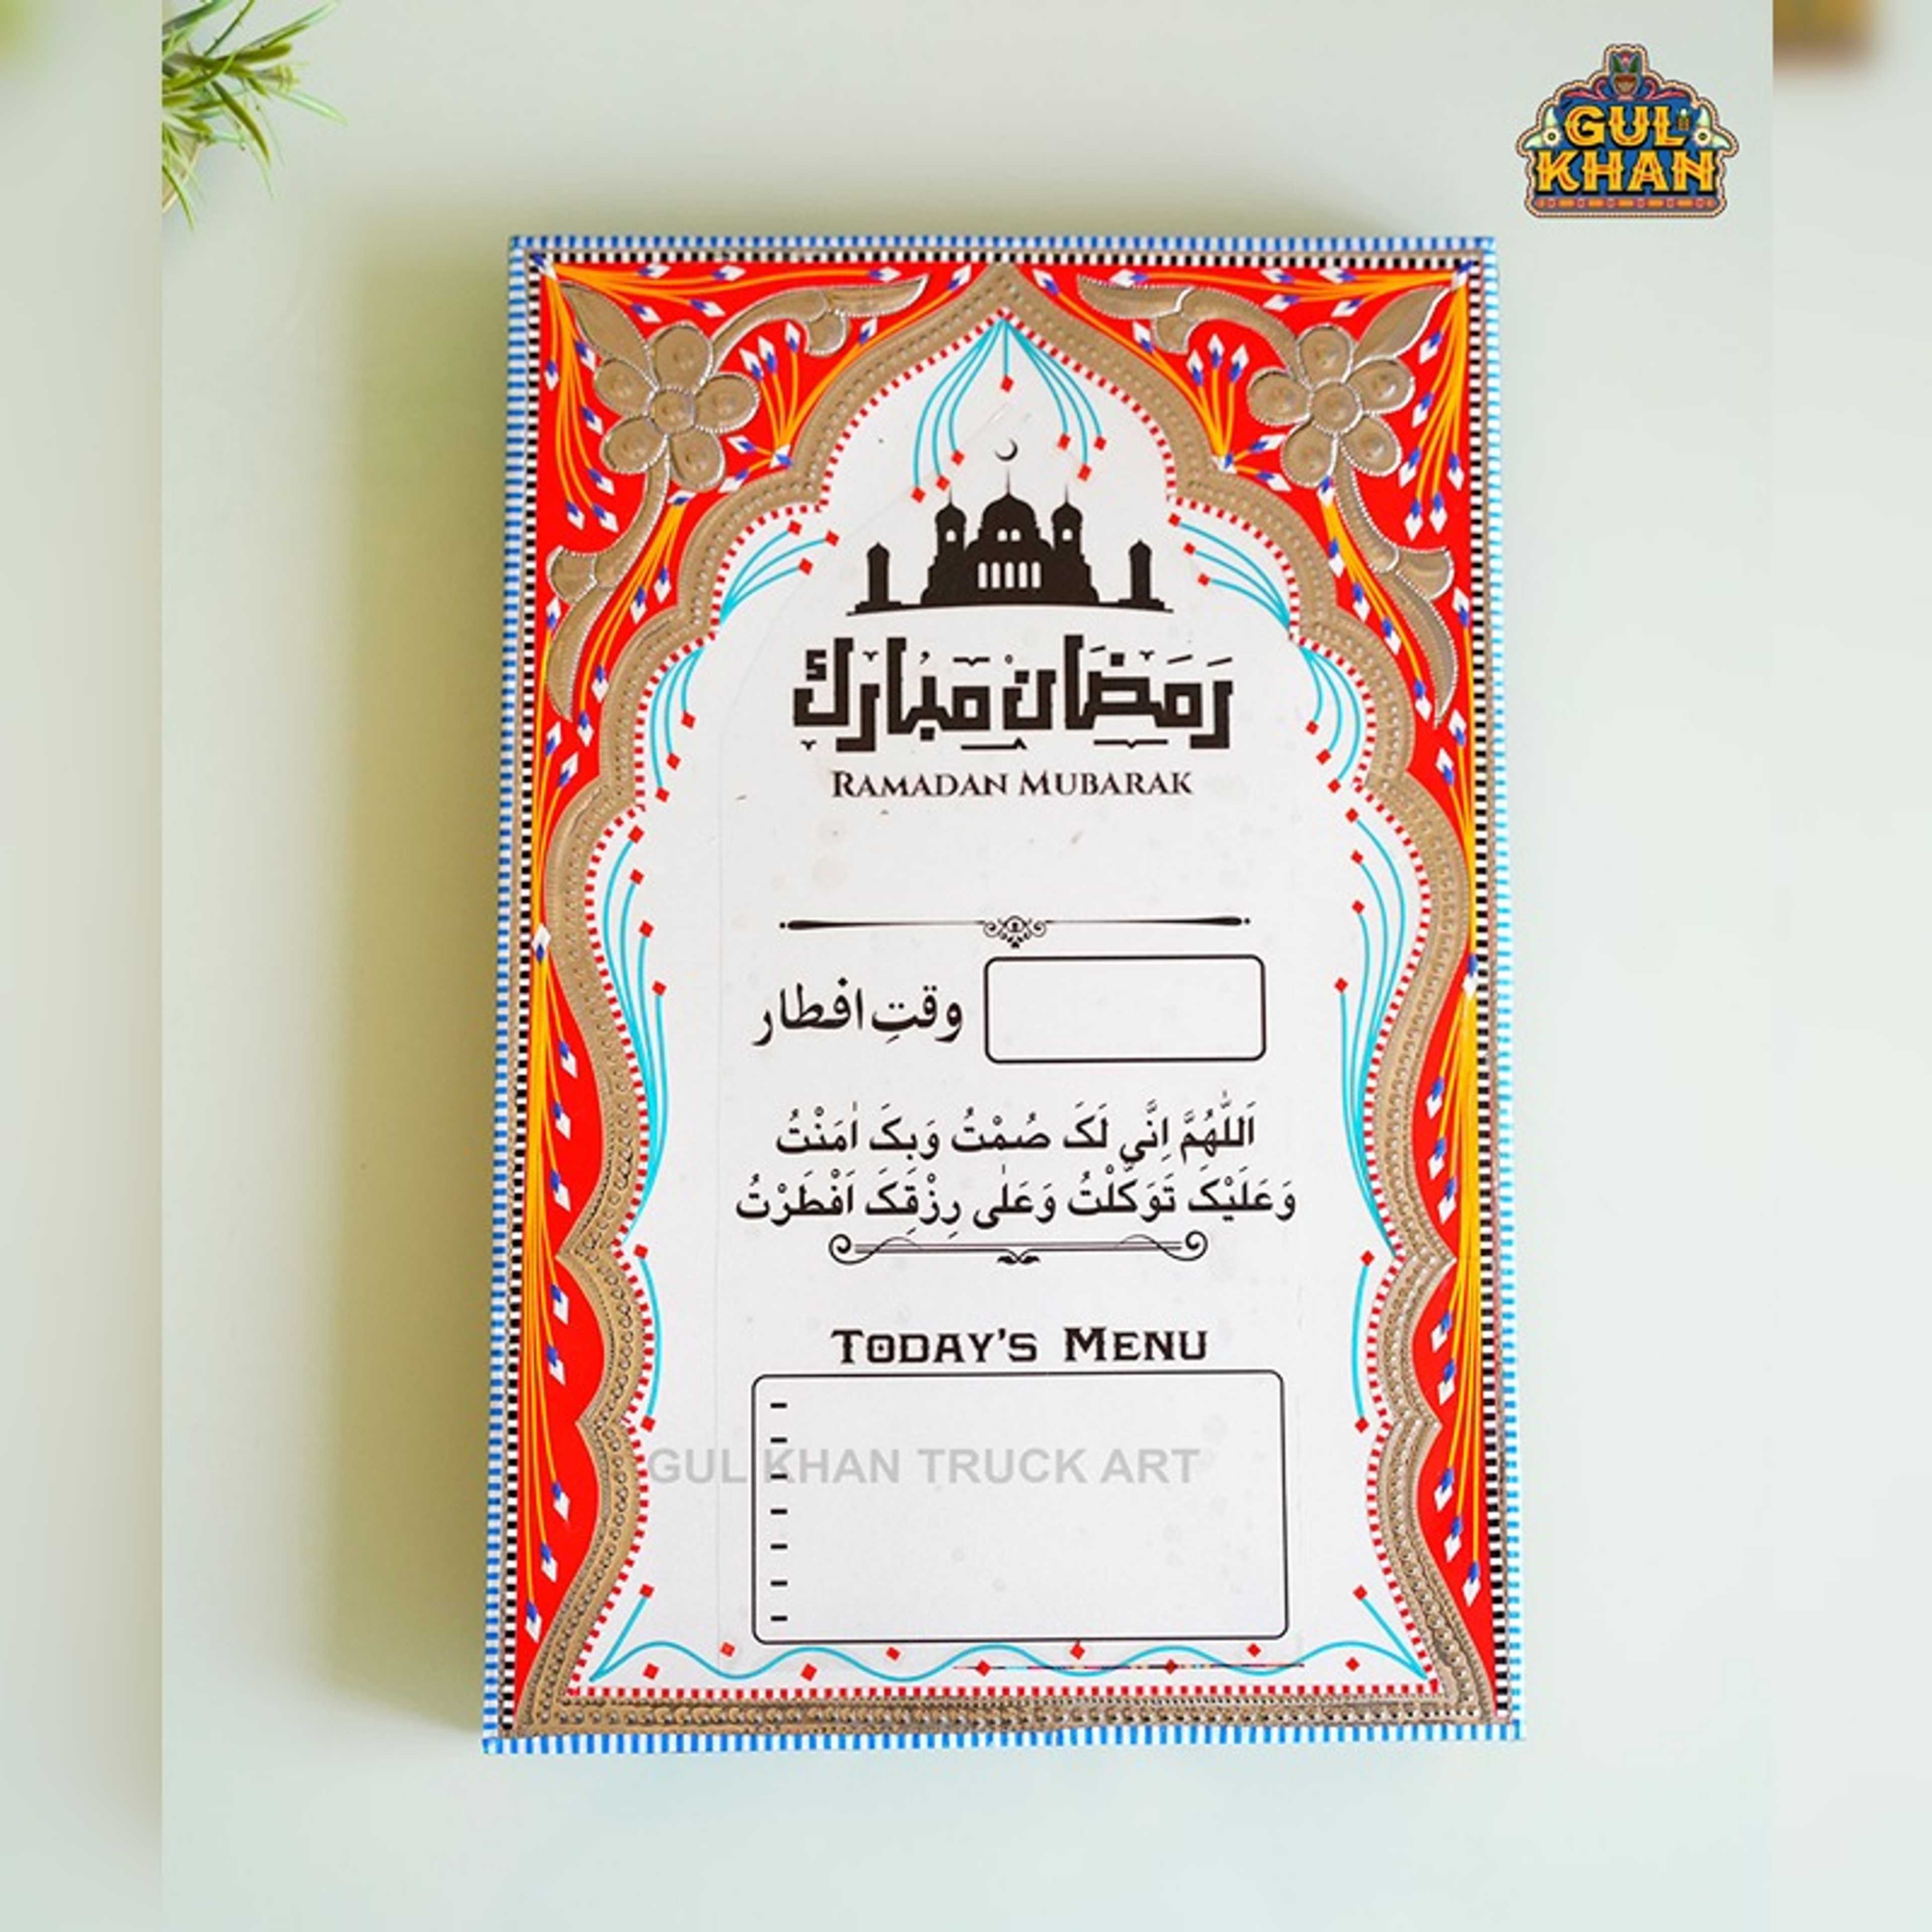 GUL
KHAN
رَمَضَان مُبَارك
RAMADAN MUBARAK
وقتِ افطار
اَللّٰهُمَّ اِنَّی لَکَ صُمْتُ وَبِکَ اٰمَنْتُ
وَعَلَيْکَ تَوَکَّلْتُ وَعَلٰی رِزْقِکَ اَفْطَرْتُ
TODAY'S MENU
GUL KHAN TRUCK ART